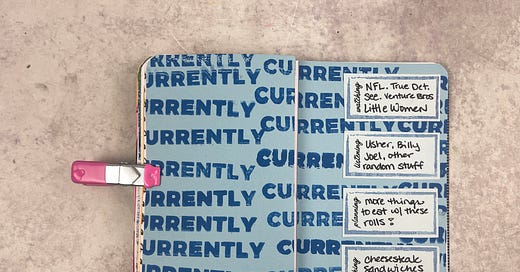 CURRENTLY CURRENTLY
CURRENTLY
CURRENTLY CURRENTLY
CURRENTLY
CURRENTLY CURRENTLY
CURRENTLY
CURRENTLY
CURRENTLY
CURRENTLY
watching
NFL. True Det.
See. Venture Bros
Little Women
listening
Usher, Billy
Joel, other
random stuff
planning
more things
to eat w/ these
rolls
cheesesteak
sandwiches